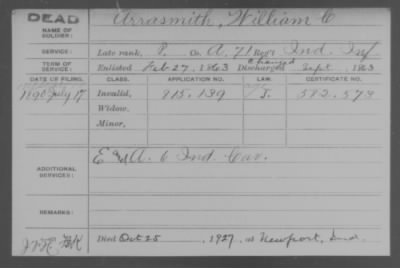 DEAD Arrasmith, William C
NAME OF SOLDIER:
SERVICE: Late rank, P. Co. A, 71 Reg't Ind. Inf
TERM OF SERVICE: Enlisted Feb 27, 1863 Discharged Sept , 1863
DATE OF FILING. CLASS. APPLICATION NO. LAW. CERTIFICATE NO.
1890 July 17 Invalid, 815.139 J. 582.573
Widow.
Minor,
ADDITIONAL SERVICES: E & A. 6 Ind. Cav.
REMARKS:
Died Oct 25 , 1927, at Newport, Ind.